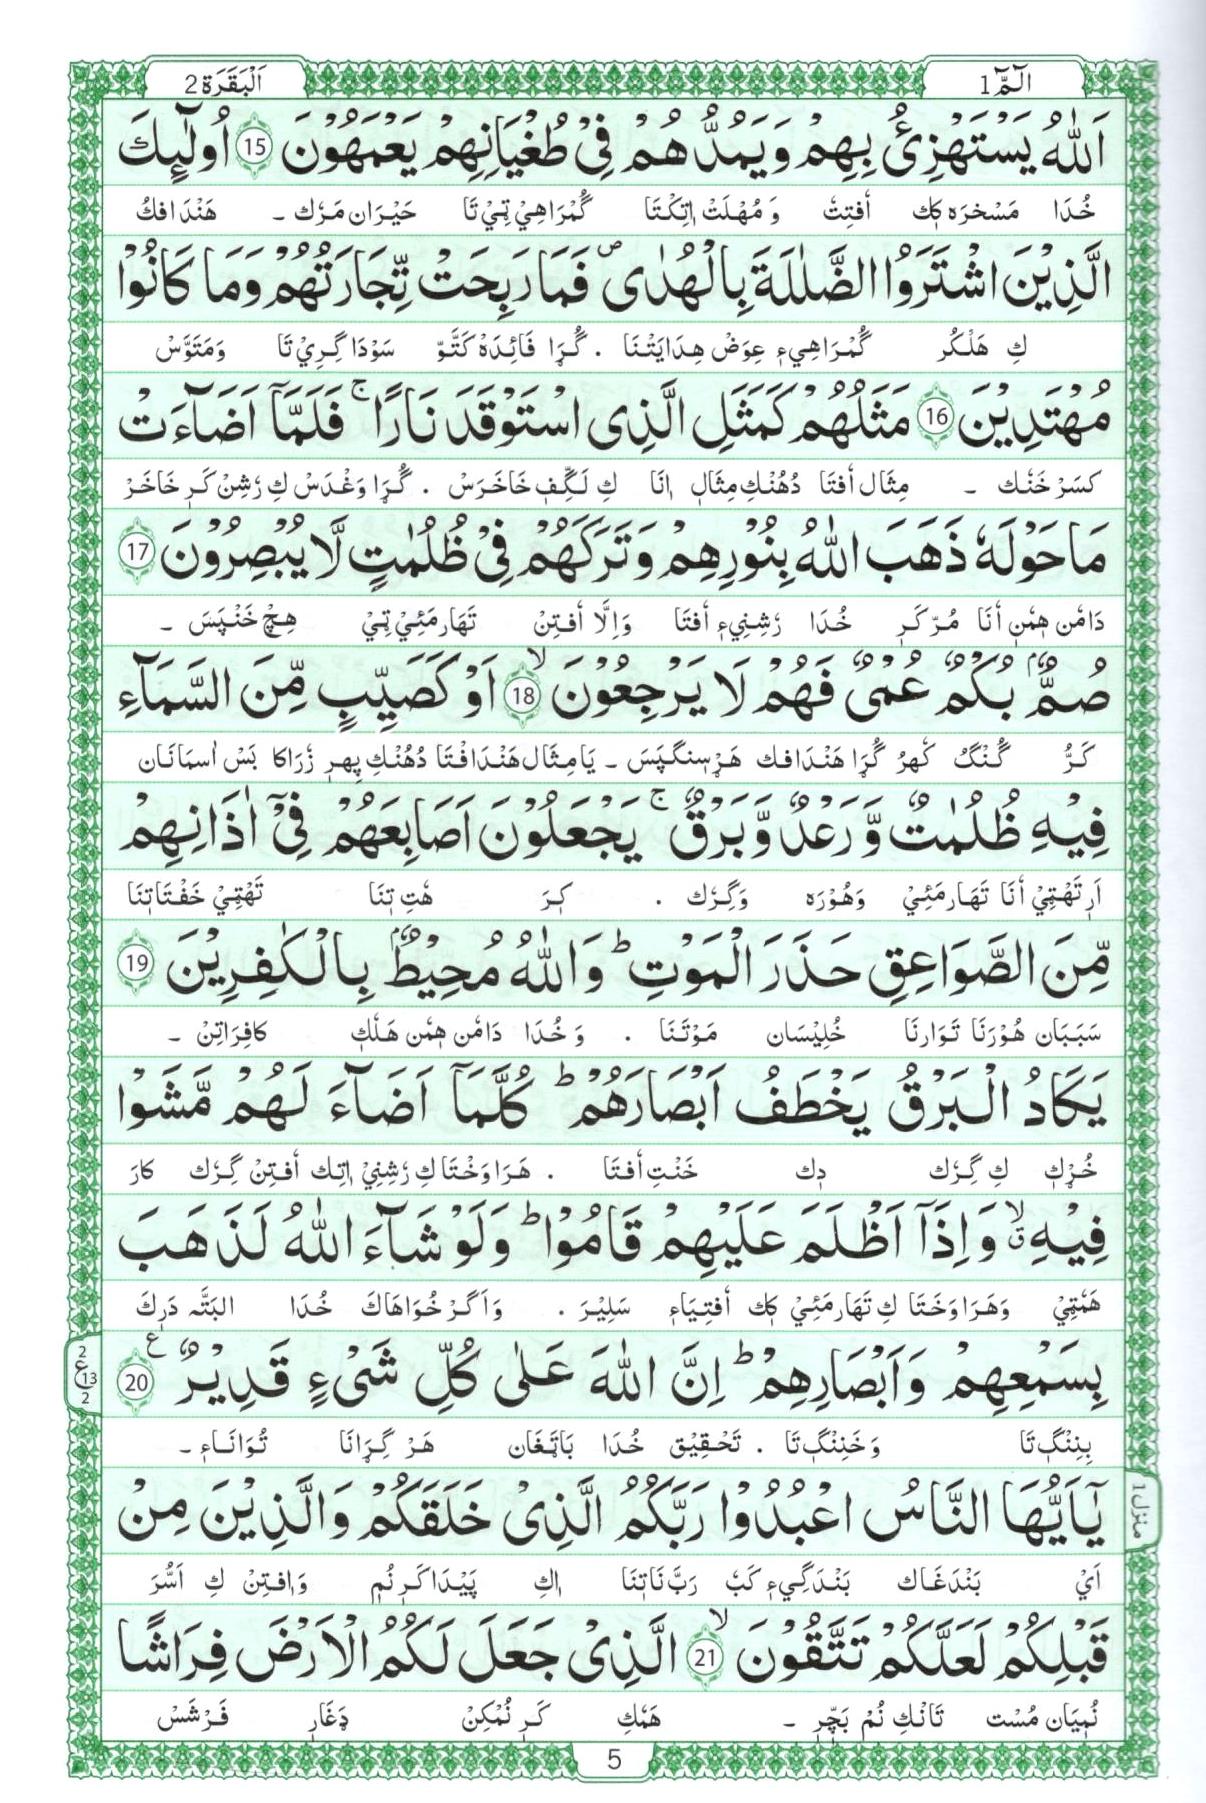 الٓمّٓ 1
اَلْبَقَرَة 2
اَللّٰهُ يَسْتَهْزِئُ بِهِمْ وَيَمُدُّهُمْ فِيْ طُغْيَانِهِمْ يَعْمَهُوْنَ 15 اُولٰٓئِكَ
خُدَا مَسْخرَه كك أفتِتْ وَ مُهْلَتْ اِتِكْتَا گُمْرَاهِيْ تِيْ تَا حَيْرَان مَرْك ۔ هَنْدَافكْ
الَّذِيْنَ اشْتَرَوُا الضَّلٰلَةَ بِالْهُدٰى ۖ فَمَا رَبِحَتْ تِّجَارَتُهُمْ وَمَا كَانُوْا
كِ هَلْكُر گُمْرَاهِيءِ عِوَضْ هِدَايَتْنَا . گُرَا فَائِدَه كَتَّوْ سَوْدَا گِرِيْ تَا وَمَتَوَّسْ
مُهْتَدِيْنَ 16 مَثَلُهُمْ كَمَثَلِ الَّذِى اسْتَوْقَدَ نَارًا ۚ فَلَمَّآ اَضَآءَتْ
كسَرْ خَنْك ۔ مِثَال أفتَا دُهُنْكِ مِثَالِ اِنَا كِ لَگِفِ خَاخَرَسْ . گُرَا وَغْدَسْ كِ رُشِنْ كَرِ خَاخَرْ
مَا حَوْلَهٗ ذَهَبَ اللّٰهُ بِنُوْرِهِمْ وَتَرَكَهُمْ فِيْ ظُلُمٰتٍ لَّا يُبْصِرُوْنَ 17
دَامُن هِمُن أنَا مُرّ كَرِ خُدَا رُشِنِيءِ أفتَا وَاِلَّا أفتِنْ تَهَارمَئِيْ تِيْ هِچْ خَنْپَسَ ۔
صُمٌّۢ بُكْمٌ عُمْىٌ فَهُمْ لَا يَرْجِعُوْنَ ۙ 18 اَوْ كَصَيِّبٍ مِّنَ السَّمَآءِ
كَرُّ گُنْگُ كَهرُ گُرَا هَنْدَافك هَرْسِنگپَسَ ۔ يَا مِثَال هَنْدَافْتَا دُهُنْكِ پِهر زُرَاكَا بَسْ اَسمَانَان
فِيْهِ ظُلُمٰتٌ وَّرَعْدٌ وَّبَرْقٌ ۚ يَجْعَلُوْنَ اَصَابِعَهُمْ فِيْٓ اٰذَانِهِمْ
اَرِ تَهْتِيْ أنَا تَهَارمَئِيْ وَهُوْرَه وَگِرْك . كِرَ هُتِ تِنَا تَهْتِيْ خَفْتَاتِنَا
مِّنَ الصَّوَاعِقِ حَذَرَ الْمَوْتِ ؕ وَاللّٰهُ مُحِيْطٌۢ بِالْكٰفِرِيْنَ 19
سَبَبَان هُوْرَنَا تَوَارنَا خُلِيْسَان مَوْتَنَا . وَ خُدَا دَامُن هِمُن هَلْكِ كَافِرَاتِنْ ۔
يَكَادُ الْبَرْقُ يَخْطَفُ اَبْصَارَهُمْ ؕ كُلَّمَآ اَضَآءَ لَهُمْ مَّشَوْا
خُرْكِ كِ گِرْك دِك خَنْتِ أفتَا . هَرَاوَخْتَا كِ رُشِنِيْ اِتِك أفتِنْ گِرْك كارَ
فِيْهِ ۙ وَاِذَآ اَظْلَمَ عَلَيْهِمْ قَامُوْا ؕ وَلَوْ شَآءَ اللّٰهُ لَذَهَبَ
هَمْتِيْ وَهَرَاوَخْتَا كِ تَهَارمَئِيْ كك أفتِيَاءِ سَلِيْرَ . وَاَگَرْ خُوَاهَاكَ خُدَا البَتَّه دَرِكَ
بِسَمْعِهِمْ وَاَبْصَارِهِمْ ؕ اِنَّ اللّٰهَ عَلٰى كُلِّ شَىْءٍ قَدِيْرٌ ع 20
2 ع 13 2
بِنِنْگِ تَا وَخَنِنْگِ تَا . تَحْقِيْق خُدَا بَاتِغَان هَرْ گِرَانَا تُوَانَاءِ ۔
يٰٓاَيُّهَا النَّاسُ اعْبُدُوْا رَبَّكُمُ الَّذِىْ خَلَقَكُمْ وَالَّذِيْنَ مِنْ
منزل 1
اَيْ بَنْدَغَاك بَنْدَگِيءِ كَبْ رَبَّ نَا تِنَا اكِ پَيْدَا كَرِ نُمِ وَافتِنْ كِ اَسُّرَ
قَبْلِكُمْ لَعَلَّكُمْ تَتَّقُوْنَ ۙ 21 الَّذِىْ جَعَلَ لَكُمُ الْاَرْضَ فِرَاشًا
نُمِيَان مُسْت تَانْكِ نُمْ بَچِّرِ ۔ هَمْكِ كَرِ نُمْكِنْ دِغَارِ فَرْشَسْ
5